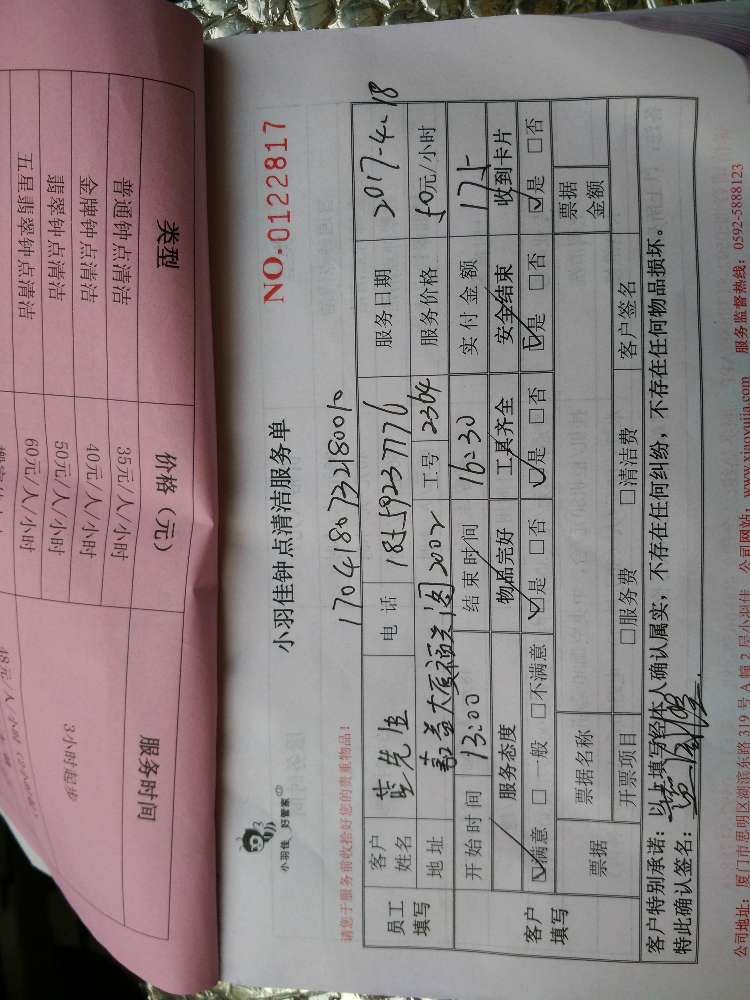 类型 价格（元） 服务时间
普通钟点清洁 35元/人/小时
金牌钟点清洁 40元/人/小时
翡翠钟点清洁 50元/人/小时
五星翡翠钟点清洁 60元/人/小时
3小时起步
小羽佳 好管家
小羽佳钟点清洁服务单
NO.0122817
请您于服务前收拾好您的贵重物品！
17041807321800
员工填写
客户姓名 蓝先生 电话 18559237776 服务日期 2017-4.18
地址 2002 工号 2364 服务价格 50元/小时
开始时间 13:00 结束时间 16:30 实付金额 175
客户填写
服务态度 物品完好 工具齐全 安全结束 收到卡片
☑满意 □一般 □不满意 ☑是 □否 ☑是 □否 ☑是 □否 ☑是 □否
票据 票据名称 票据金额
开票项目 □服务费 □清洁费 客户签名
客户特别承诺：以上填写经本人确认属实，不存在任何纠纷，不存在任何物品损坏。
特此确认签名：
公司地址：厦门市思明区湖滨东路319号A幢2层小羽佳 公司网站：www.xiaoyujia.com 服务监督热线：0592-5888123